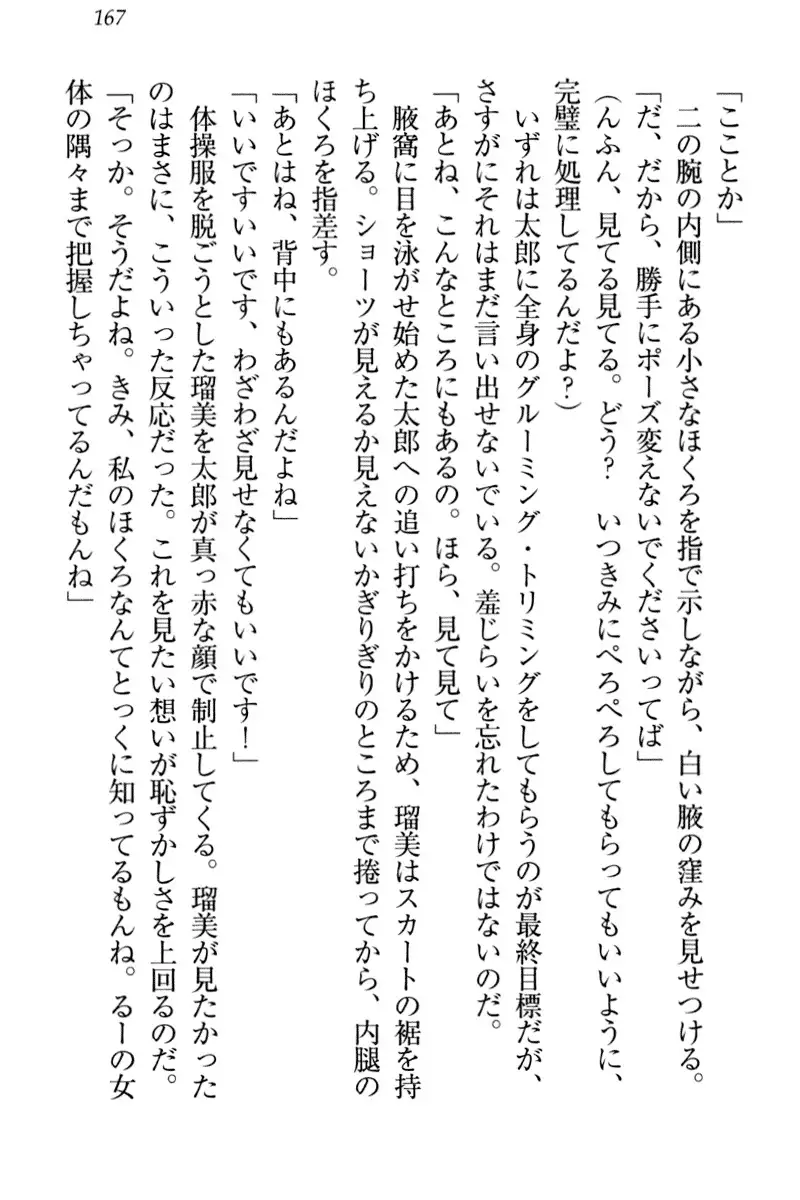 167
「こことか」
　二の腕の内側にある小さなほくろを指で示しながら、白い腋の窪みを見せつける。
「だ、だから、勝手にポーズ変えないでくださいってば」
（んふん、見てる見てる。どう？　いつきみにぺろぺろしてもらってもいいように、
完璧に処理してるんだよ？）
　いずれは太郎に全身のグルーミング・トリミングをしてもらうのが最終目標だが、
さすがにそれはまだ言い出せないでいる。羞じらいを忘れたわけではないのだ。
「あとね、こんなところにもあるの。ほら、見て見て」
　腋窩に目を泳がせ始めた太郎への追い打ちをかけるため、瑠美はスカートの裾を持
ち上げる。ショーツが見えるか見えないかぎりぎりのところまで捲ってから、内腿の
ほくろを指差す。
「あとはね、背中にもあるんだよね」
「いいですいいです、わざわざ見せなくてもいいです！」
　体操服を脱ごうとした瑠美を太郎が真っ赤な顔で制止してくる。瑠美が見たかった
のはまさに、こういった反応だった。これを見たい想いが恥ずかしさを上回るのだ。
「そっか。そうだよね。きみ、私のほくろなんてとっくに知ってるもんね。るーの女
体の隅々まで把握しちゃってるんだもんね」